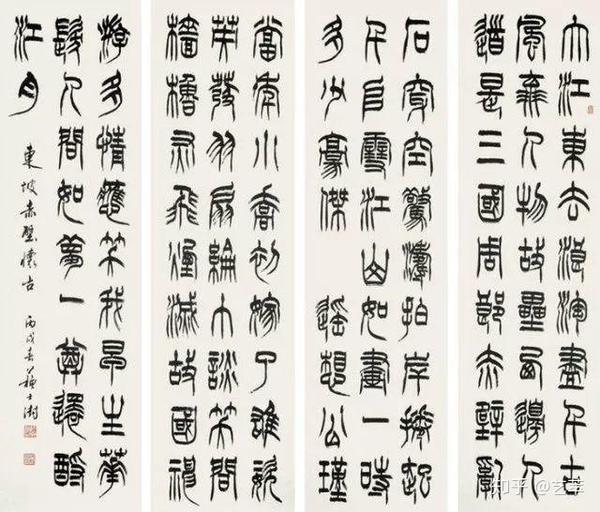 大江東去浪淘盡千古
風流人物故壘西邊人
道是三國周郎赤壁亂
石穿空驚濤拍岸捲起
千堆雪江山如畫一時
多少豪傑 遙想公瑾
當年小喬初嫁了雄姿
英發羽扇綸巾談笑間
檣櫓灰飛煙滅故國神
游多情應笑我早生華
髮人間如夢一尊還酹
江月
東坡赤壁懷古 丙戌春 蘇士澍
知乎